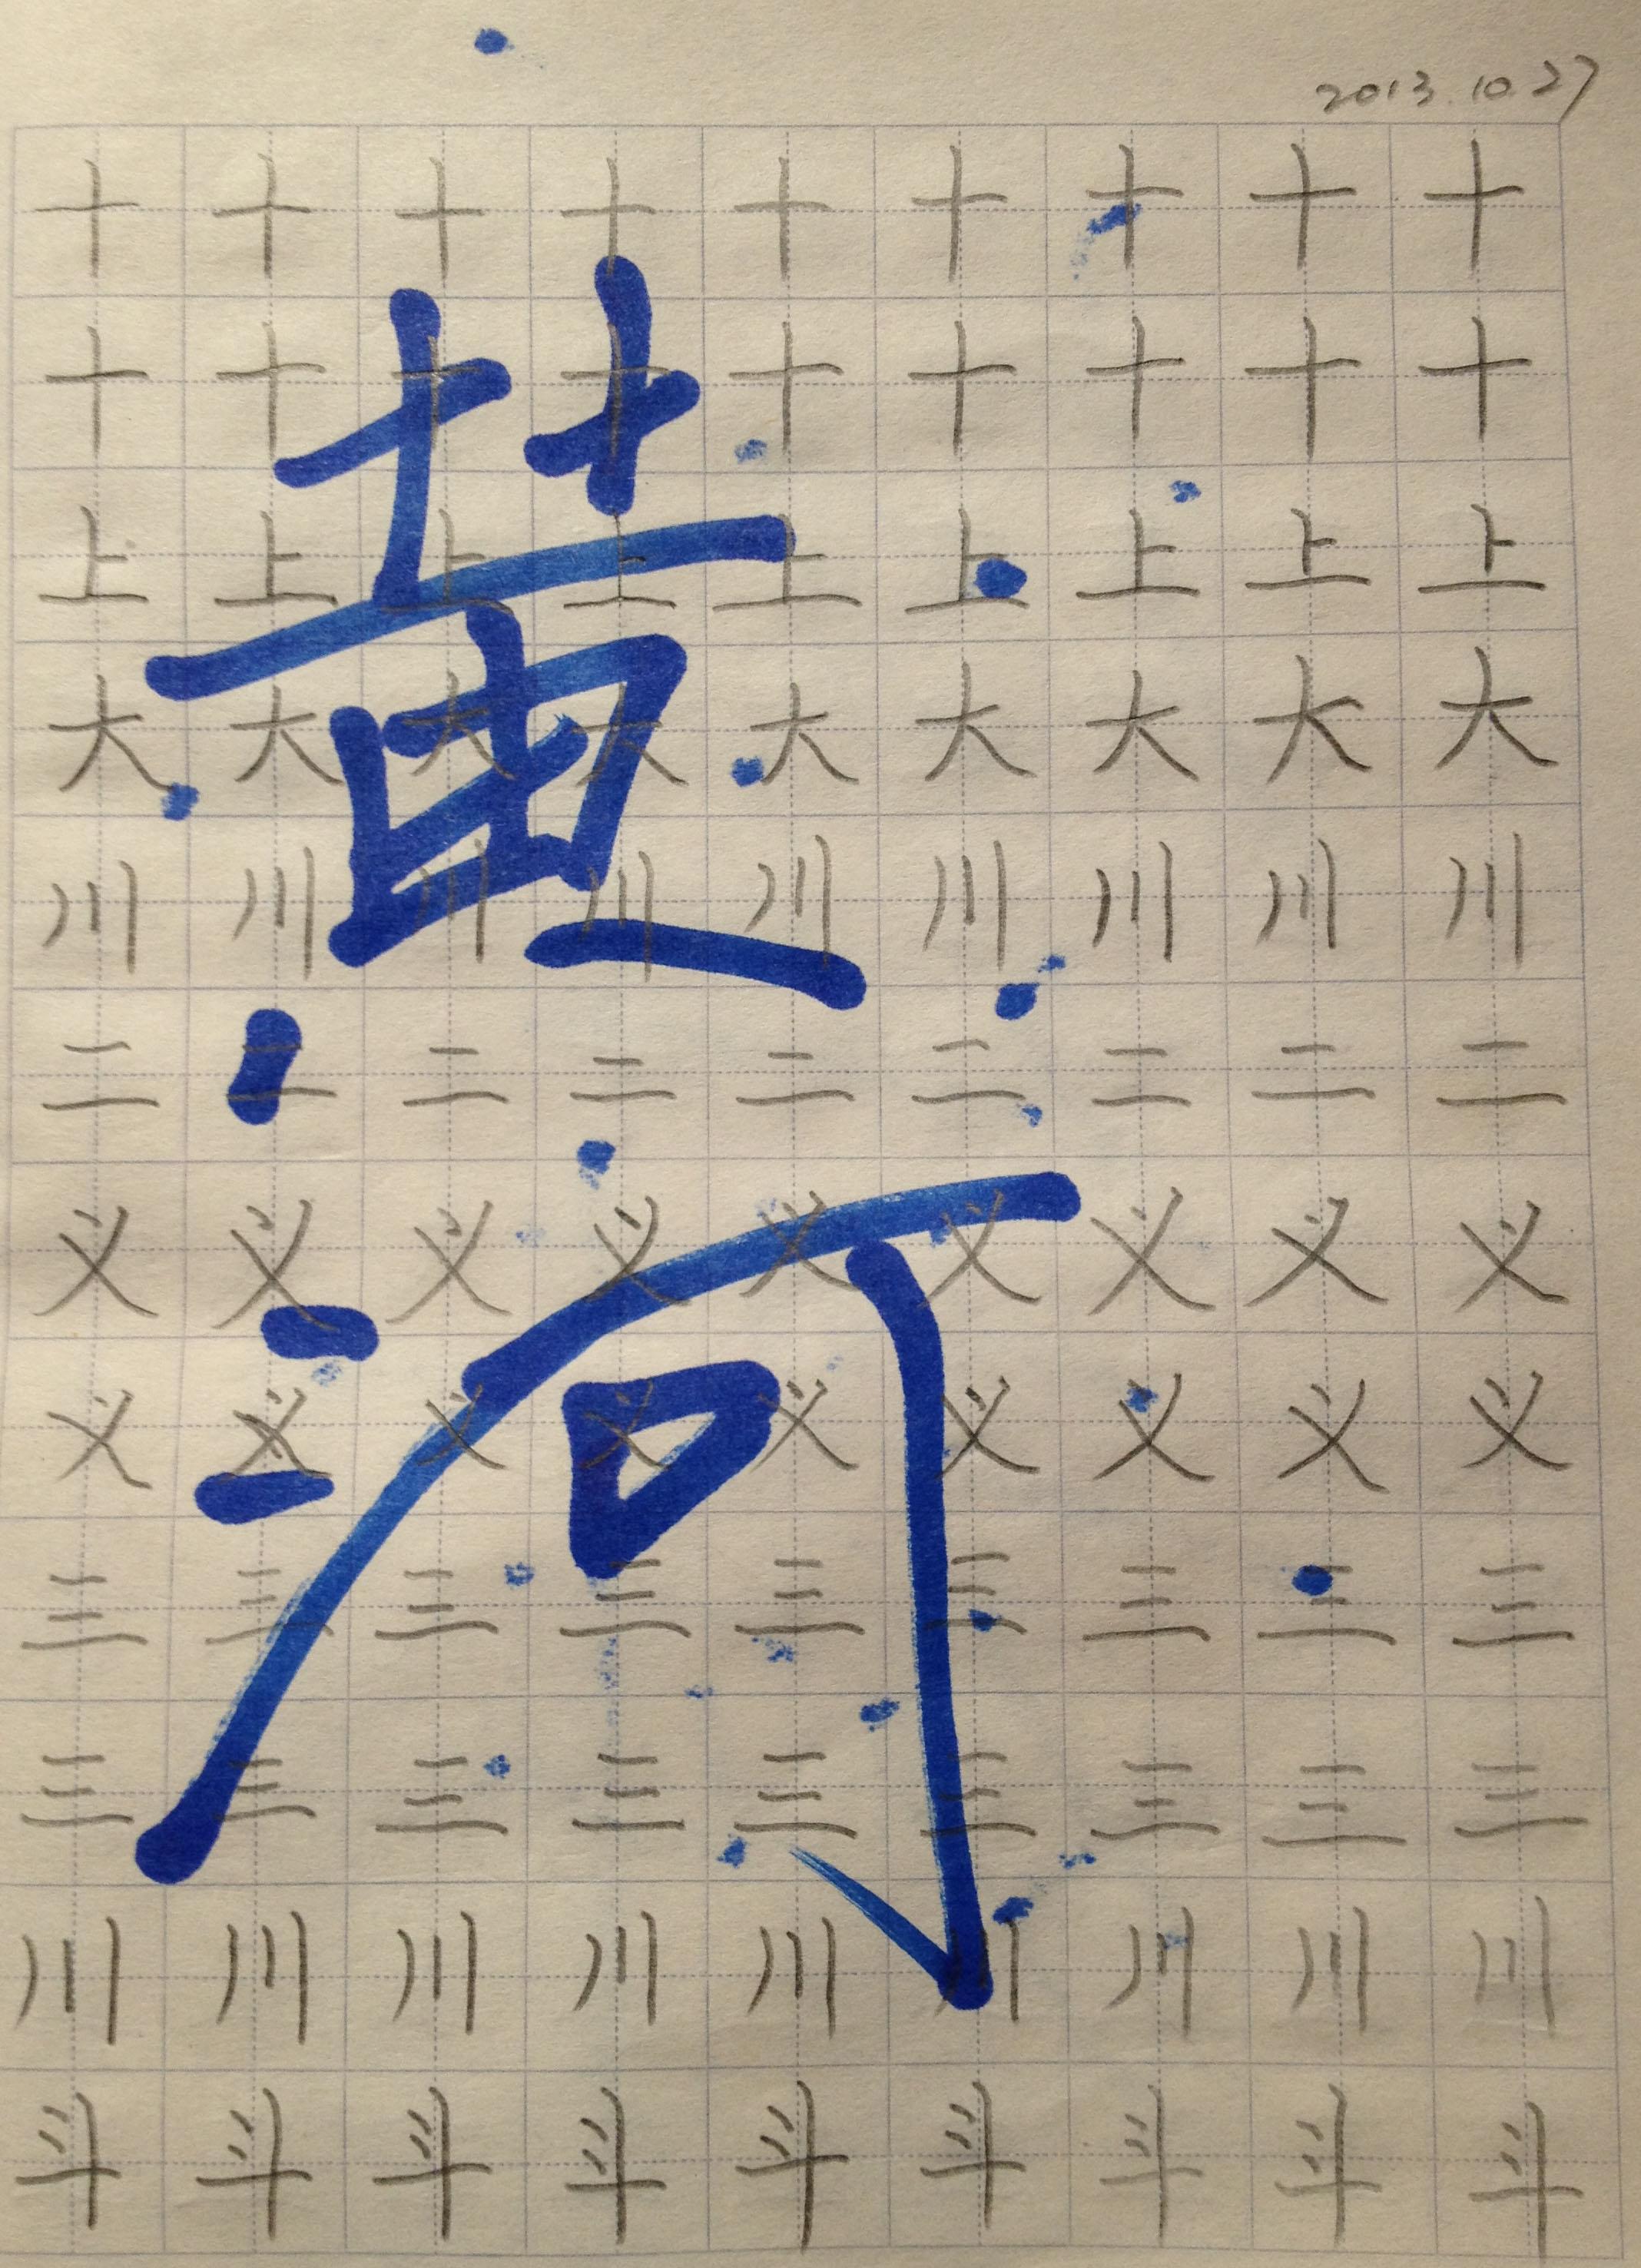 2013.10.27
十十十十十十十十十
十十十十十十十十十
上上上上上上上上上
大大大大大大大大大
川川川川川川川川川
二二二二二二二二二
义义义义义义义义义
义义义义义义义义义
三三三三三三三三三
三三三三三三三三三
川川川川川川川川川
斗斗斗斗斗斗斗斗斗
黄
河